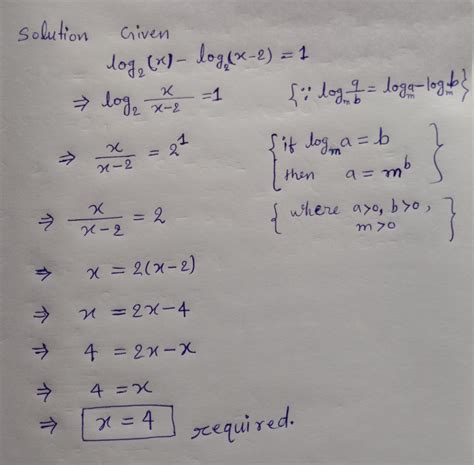 Solution Given
log₂(x) - log₂(x-2) = 1
⇒ log₂ x/(x-2) = 1 {∵ logₘ a/b = logₘa - logₘb}
⇒ x/(x-2) = 2¹ {if logₘ a = b
then a = mᵇ}
⇒ x/(x-2) = 2 {where a>0, b>0,
m>0}
⇒ x = 2(x-2)
⇒ x = 2x-4
⇒ 4 = 2x-x
⇒ 4 = x
⇒ x = 4 required.